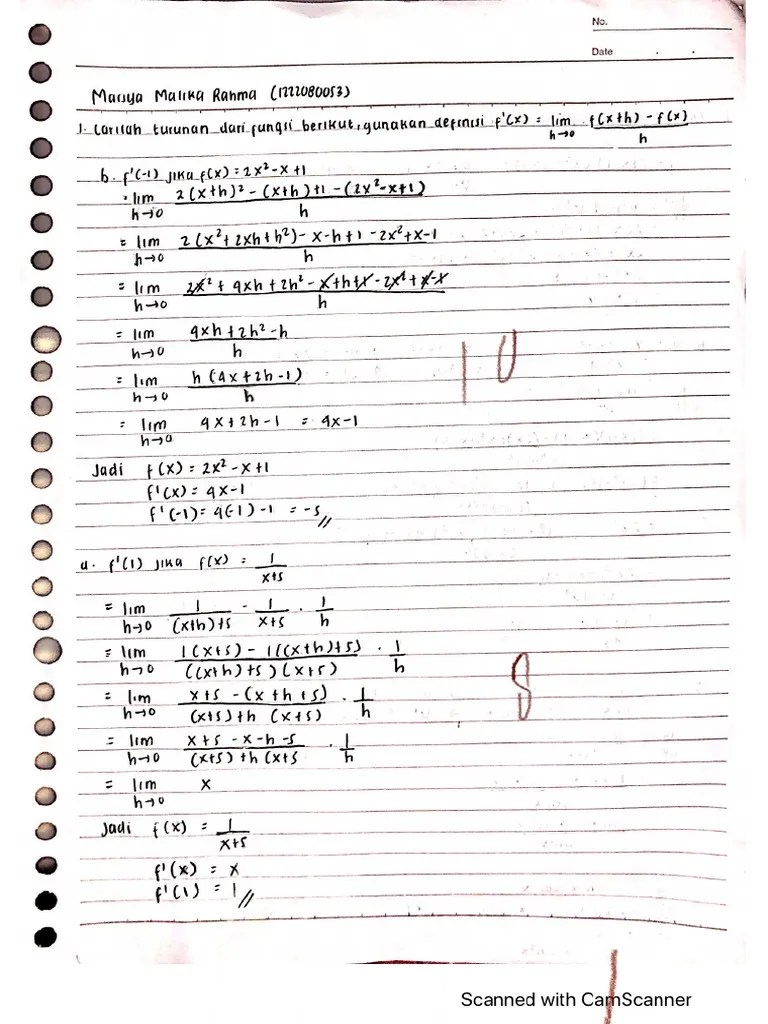 No.
Date . .
Marsya Malika Rahma (1222080053)
1. Carilah turunan dari fungsi berikut, gunakan definisi f'(x) = lim h→0 f(x+h) - f(x) / h
b. f'(-1) jika f(x) = 2x² - x + 1
= lim h→0 2(x+h)² - (x+h) + 1 - (2x² - x + 1) / h
= lim h→0 2(x² + 2xh + h²) - x - h + 1 - 2x² + x - 1 / h
= lim h→0 2x² + 4xh + 2h² - x + h + x - 2x² + x - x / h
= lim h→0 4xh + 2h² - h / h
= lim h→0 h(4x + 2h - 1) / h
= lim h→0 4x + 2h - 1 = 4x - 1
10
Jadi f(x) = 2x² - x + 1
f'(x) = 4x - 1
f'(-1) = 4(-1) - 1 = -5 //
a. f'(1) jika f(x) = 1 / x+5
= lim h→0 1 / (x+h)+5 - 1 / x+5 . 1 / h
= lim h→0 1(x+5) - 1((x+h)+5) / ((x+h)+5)(x+5) . 1 / h
= lim h→0 x+5 - (x+h+5) / (x+5)+h (x+5) . 1 / h
8
= lim h→0 x+5 - x - h - 5 / (x+5)+h (x+5 . 1 / h
= lim h→0 x
Jadi f(x) = 1 / x+5
f'(x) = x
f'(1) = 1 //
Scanned with CamScanner